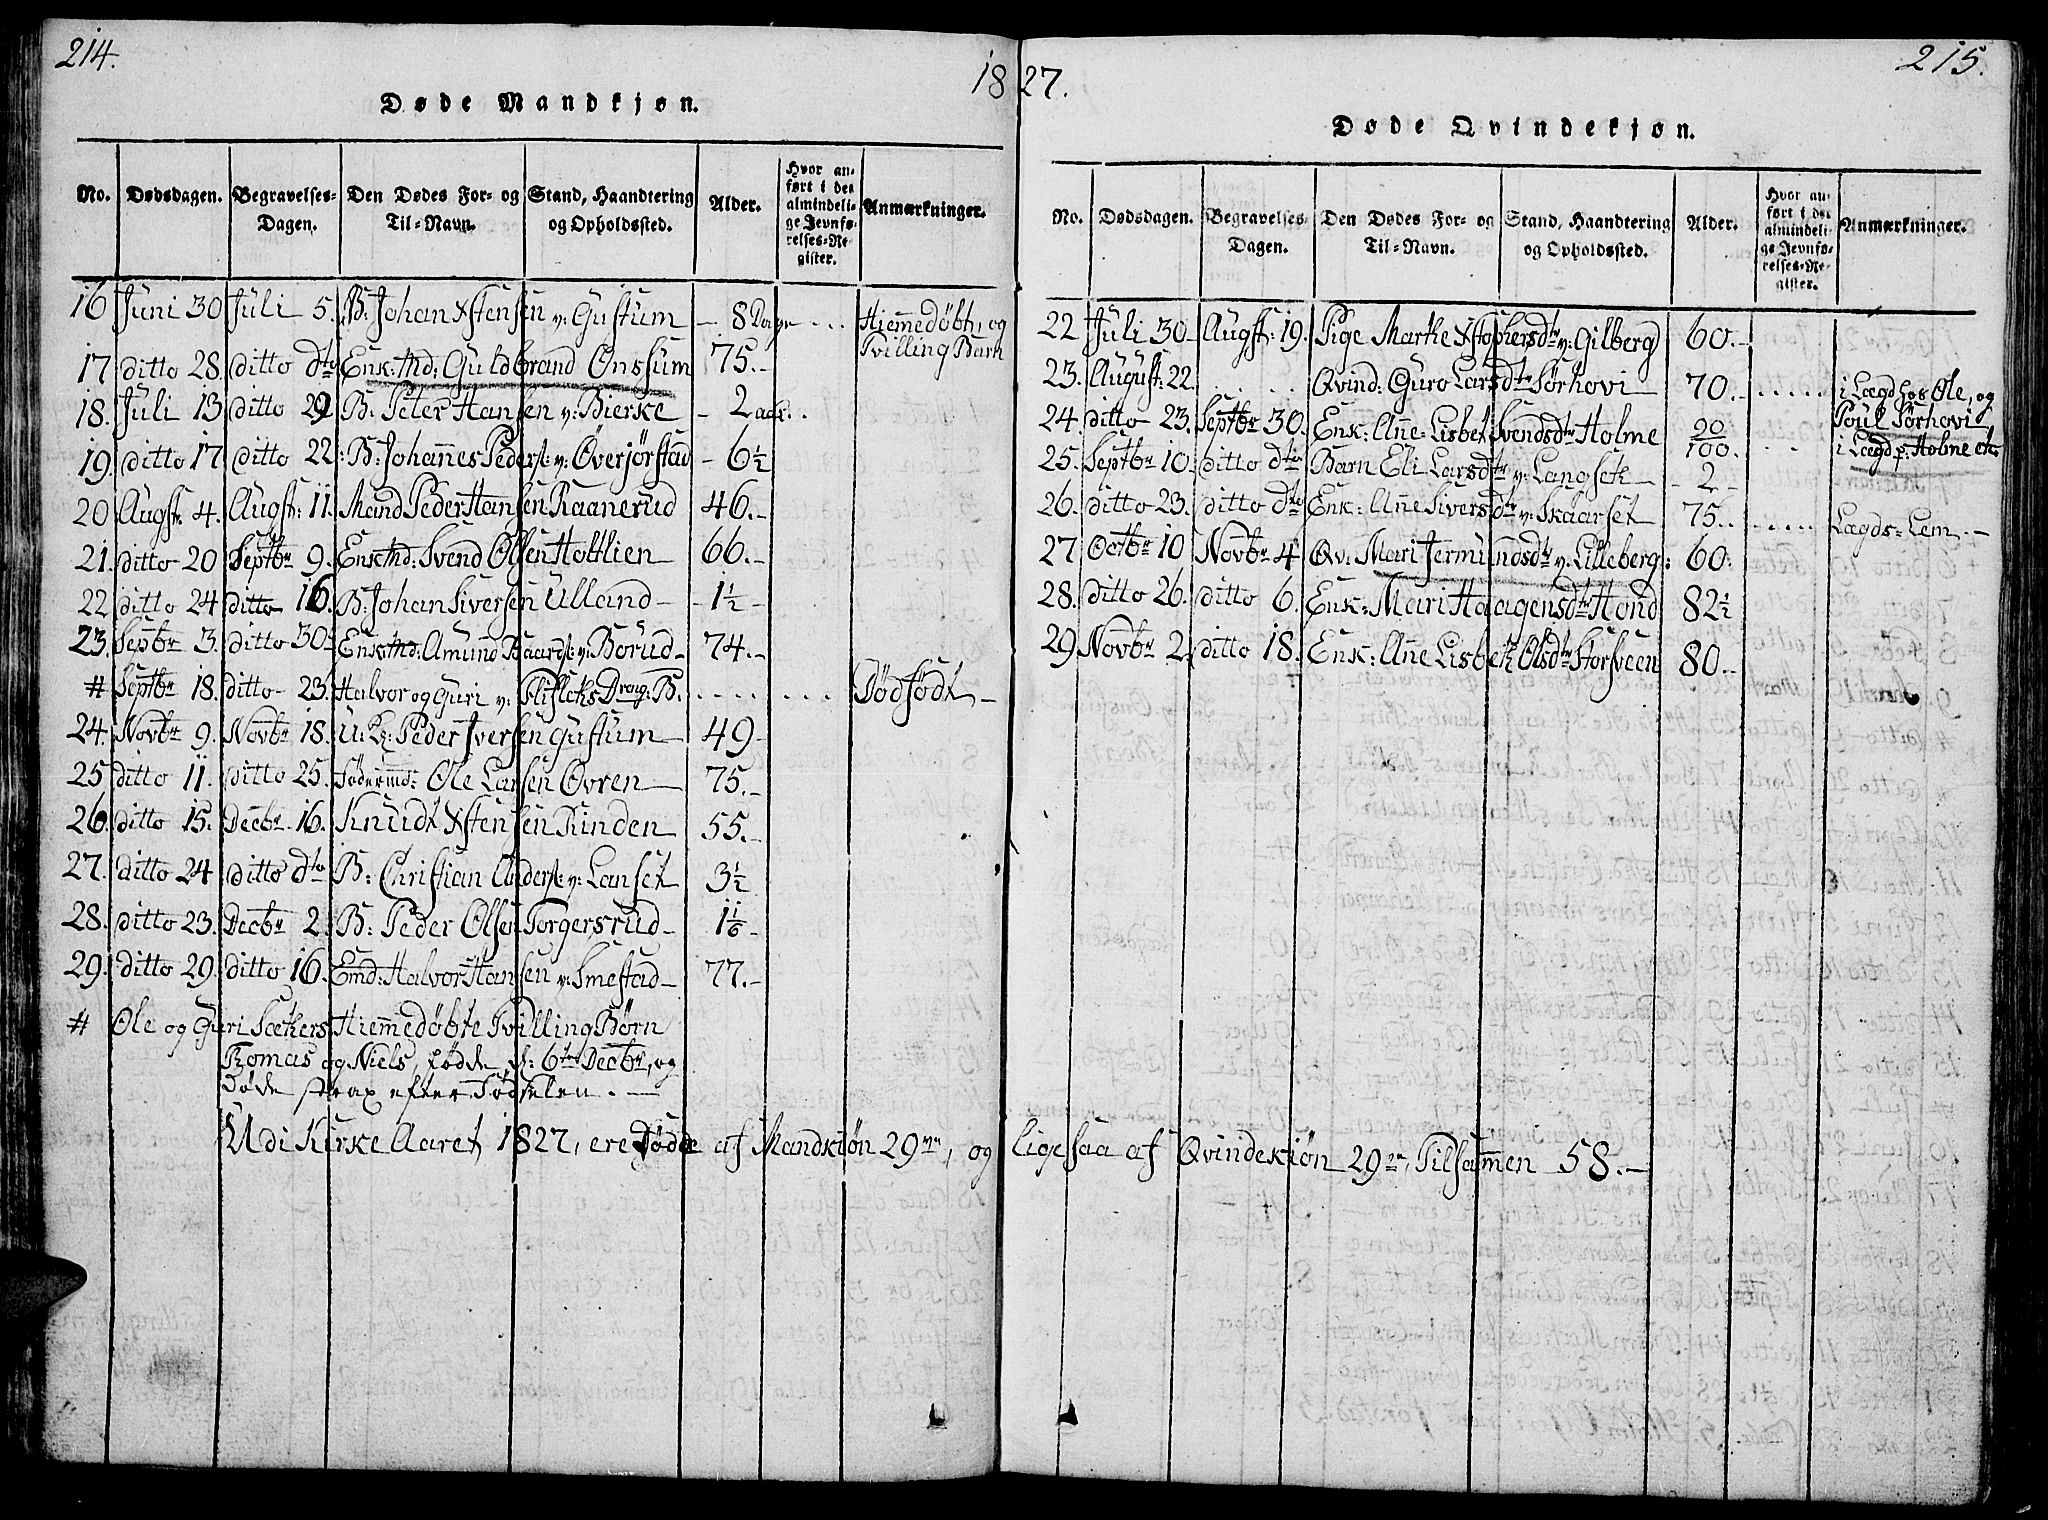 214.
1827.
215.
Døde Mandkjøn.
No. Dødsdagen. Begravelses-Dagen. Den Dødes For- og Til-Navn. Stand, Haandtering og Opholdssted. Alder. Hvor anført i det almindelige Jevnførelses-Register. Anmærkninger.
16 Juni 30 Juli 5. B: Johan Xstensen v: Gustum - 8 Dage ... Hiemedøbt, og
Tvilling Barn
17 ditto 28. ditto dto Enk: md: Guldbrand Onsum 75.-
18. Juli 13 ditto 29 B: Peter Hansen v: Bierke - 2 aar..
19. ditto 17 ditto 22: B: Johannes Peders: v: Øverjørstad - 6½
20 Augst: 4. Augst: 11. Mand Peder Hansen Raanerud 46.-
21. ditto 20 Septbr 9. Enk: md: Svend Olsen Holtlien 66.-
22 ditto 24 ditto 16. B: Johan Siversen Ulland - 1½ -
23. Septbr 3. ditto 30 Enk: md: Amund Baards: v: Borud - 74.-
# Septbr 18. ditto 23. Halvor og Guri v: Flifleks Drag: B. .... ... Dødfødt -
24. Novbr 9. Novbr 18. U: K: Peder Iversen Gustum - 49 -
25 ditto 11. ditto 25. Fødermd: Ole Larsen Øvren - 75.-
26. ditto 15. Decbr 16. Knudt Xstensen Rinden 55.-
27. ditto 24 ditto dto B: Christian Anders: v: Lanset 3½
28. ditto 23. Decbr 2. B: Peder Olsen Torgersrud - 1⅙ -
29. ditto 29. ditto 16. Emd: Halvor Hansen v: Smestad - 77.-
# Ole og Guri Sætkers Hiemmedøbte Tvilling Børn
Thomas og Niels, fødde d: 6te Decbr, og
døde strax efter Fødselen. -
Døde Qvindekjøn.
No. Dødsdagen. Begravelses-Dagen. Den Dødes For- og Til-Navn. Stand, Haandtering og Opholdssted. Alder. Hvor anført i det almindelige Jevnførelses-Register. Anmærkninger.
22 Juli 30 Augst: 19. Pige Marthe Xstophersdtr v: Gilberg 60.-
23. August: 22. .... Qvind: Guro Larsdtr Sørhovi 70.- ..... i Lægd hos Ole, og
Poul Sørhovi
24. ditto 23. Septbr 30. Enk: Anne Lisbet Svendsdtr Holme 90/100. .. i Lægd p: Holme etc
25. Septbr 10. ditto dto Barn Eli Larsdtr v: Langset - 2 -
26. ditto 23. ditto dto Enk: Anne Siversdtr v: Skaarset 75.. ..... Lægds-Lem.-
27 Octbr 10 Novbr 4 Qv: Mari Jermundsdtr v: Lilleberg: 60.
28. ditto 26. ditto 6. Enk: Mari Haagensdtr Hond 82½
29 Novbr 2. ditto 18. Enk: Anne Lisbeth Olsdtr Storsveen 80.-
Udi Kirke Aaret 1827, ere Døde af Mandkiøn 29, og ligesaa af Qvindekiøn 29, Tilsammen 58.-